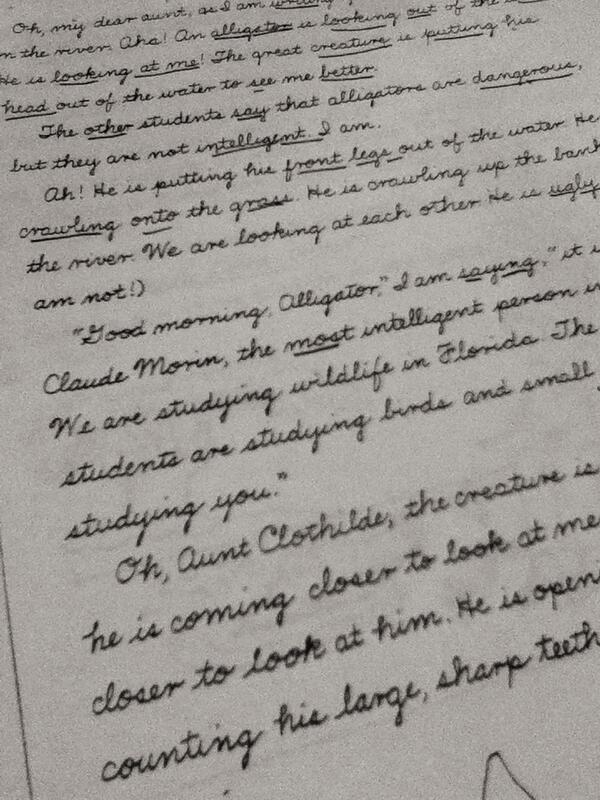 Oh, my dear aunt, as I am writing
n the river. Aha! An alligator is looking out of the
He is looking at me! The great creature is putting his
head out of the water to see me better.
The other students say that alligators are dangerous,
but they are not intelligent. I am.
Ah! He is putting his front legs out of the water He
crawling onto the grass. He is crawling up the bank
the river. We are looking at each other He is ugly
am not!)
"Good morning, Alligator," I am saying, "it i
Claude Morin, the most intelligent person in
We are studying wildlife in Florida. The
students are studying birds and small
studying you."
Oh, Aunt Clothilde, the creature is
he is coming closer to look at me
closer to look at him. He is openi
counting his large, sharp teeth